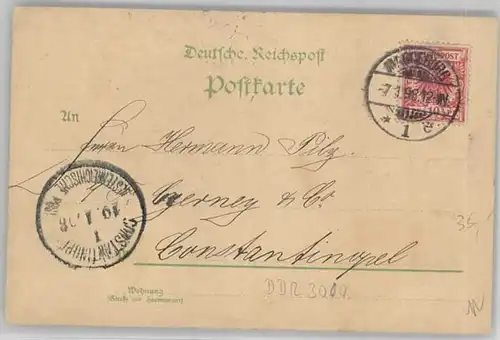 Deutsche Reichspost
Postkarte
An
Herrn Hermann Pilz
Czerney & Co.
Constantinopel
Wohnung
(Straße und Hausnummer)
-7.1.98.12-1N.
* 1 e
CONSTANTINOPEL
1
10.1.98
OESTERREICHISCHE POST
DDR 3000